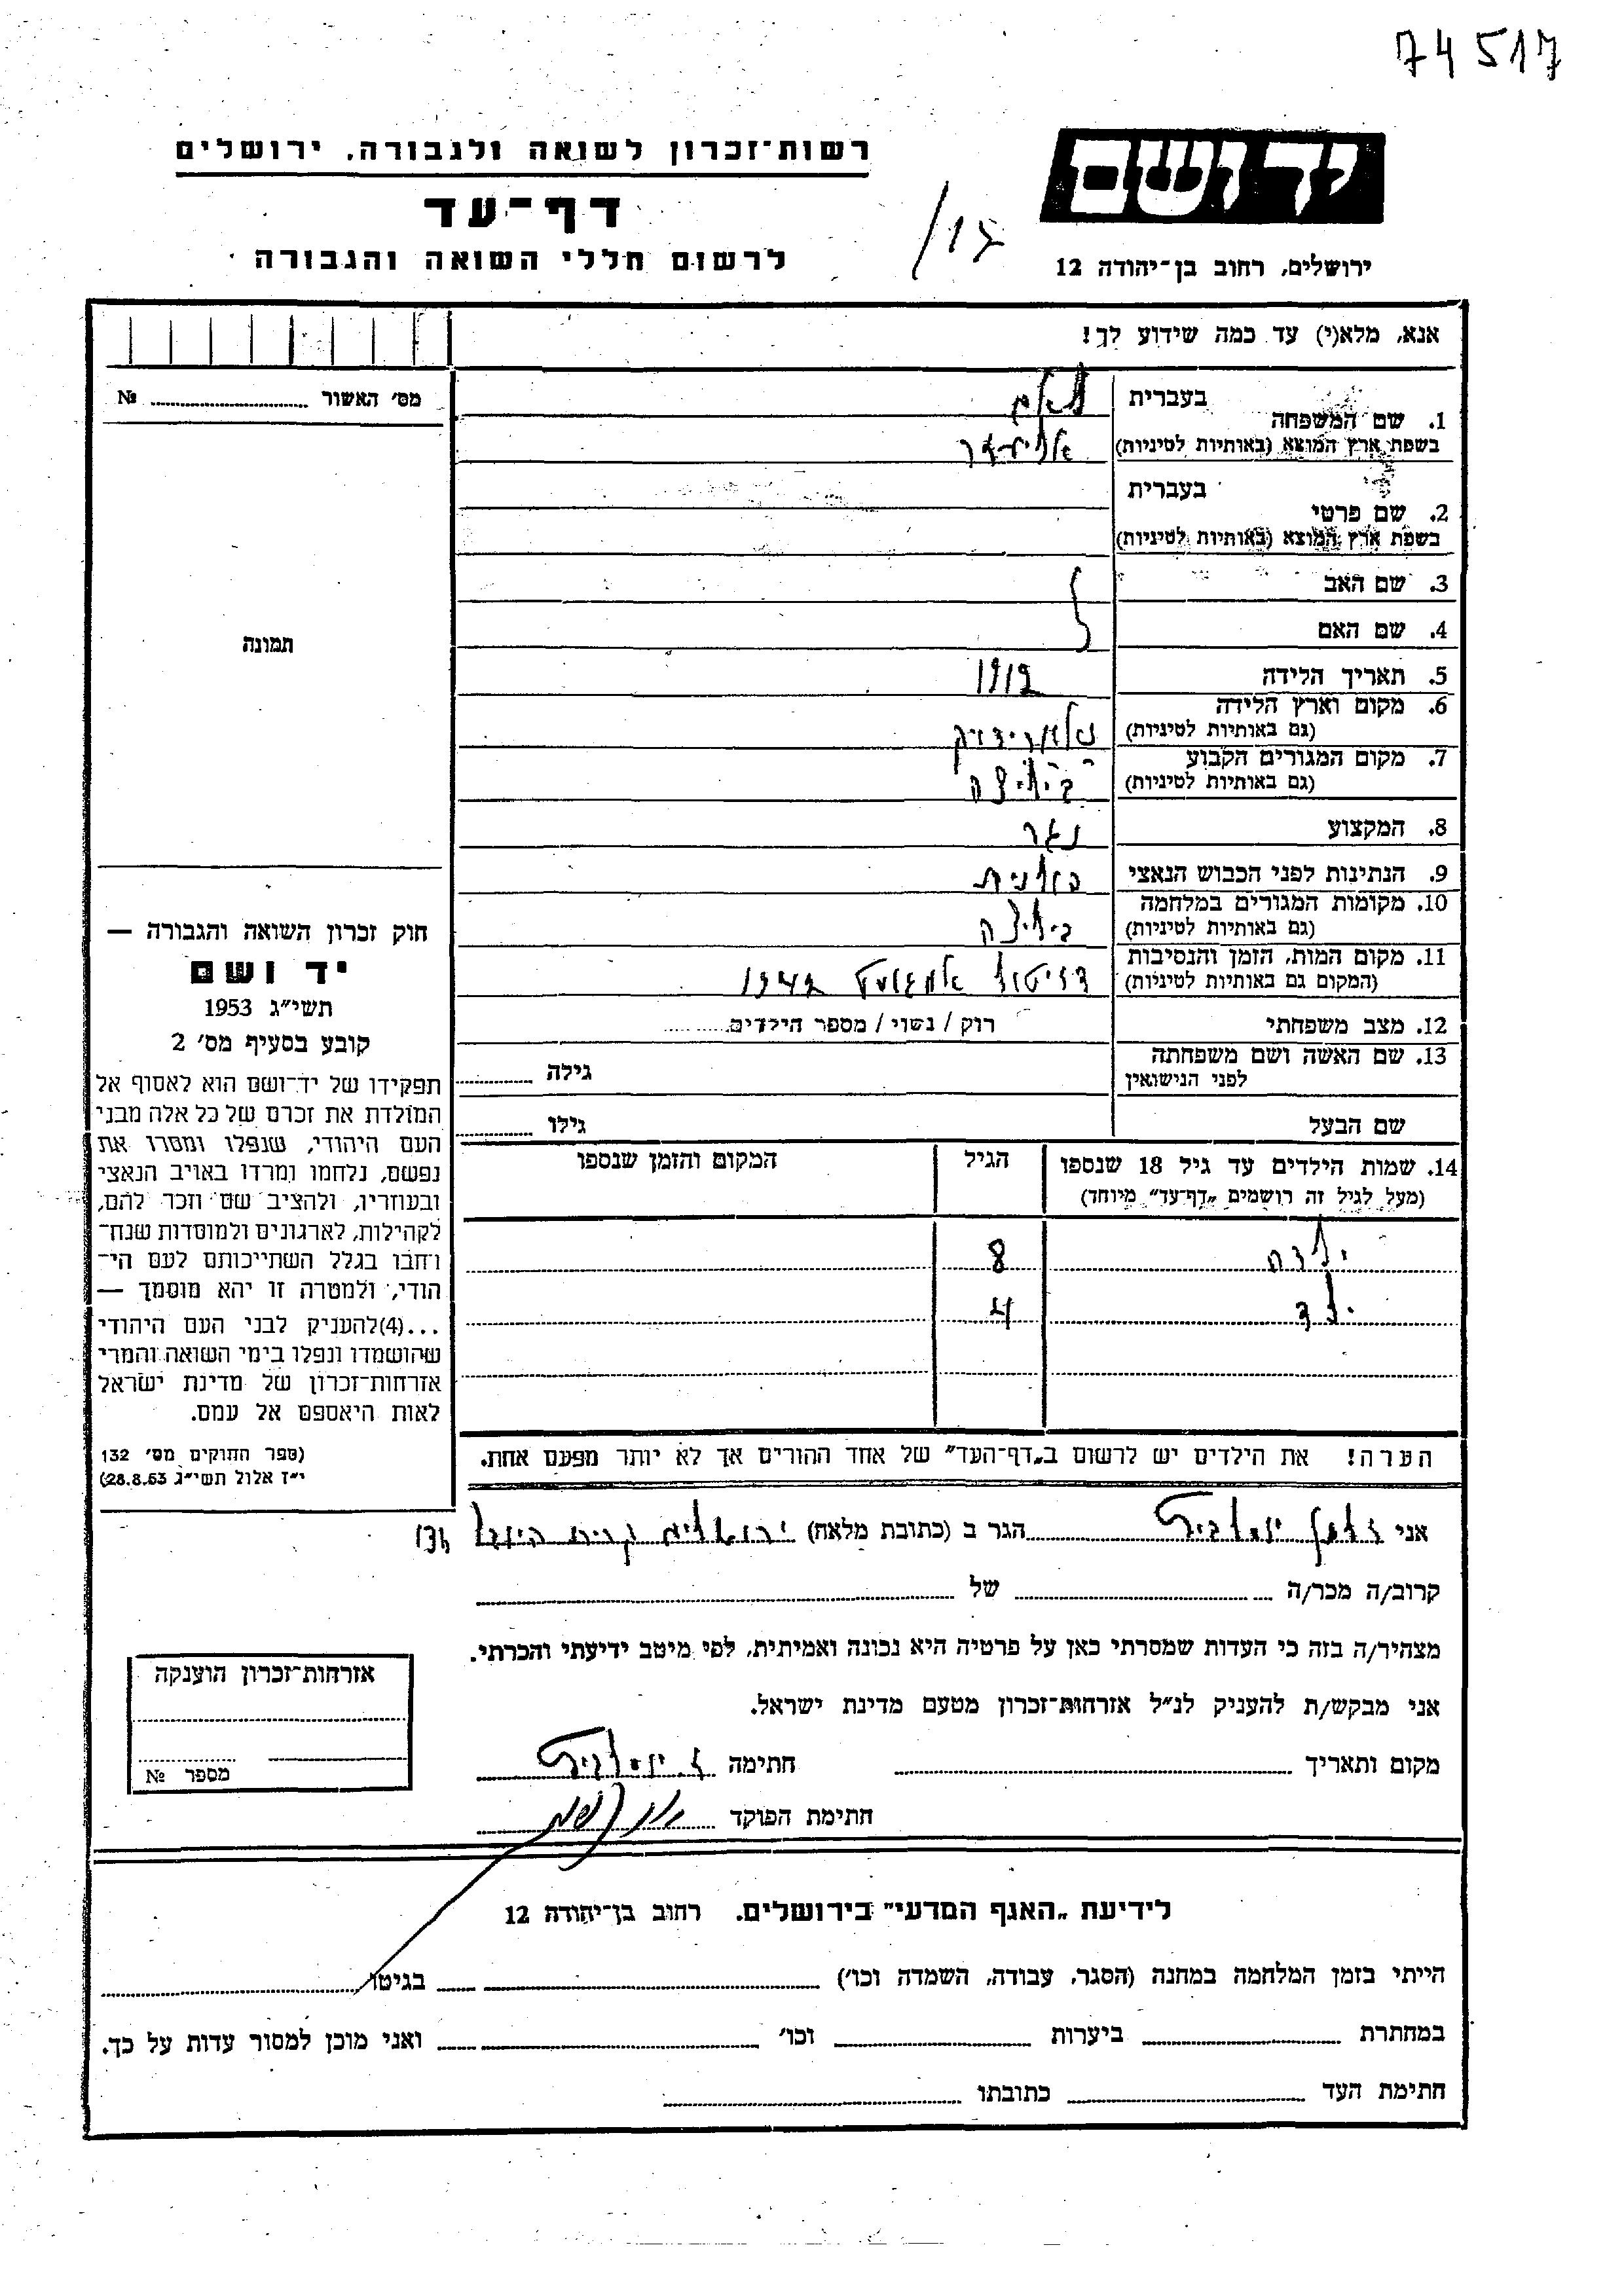 74517
רשות־זכרון לשואה ולגבורה, ירושלים
דף־עד
לרשום חללי השואה והגבורה
יד ושם
ירושלים, רחוב בן־יהודה 12
אנא, מלא(י) עד כמה שידוע לך!
מס׳ האשור ........ №
1. שם המשפחה
בעברית
בשפת ארץ המוצא (באותיות לטיניות)
2. שם פרטי
בעברית
בשפת ארץ המוצא (באותיות לטיניות)
3. שם האב
4. שם האם
תמונה
5. תאריך הלידה 1912
6. מקום וארץ הלידה
(גם באותיות לטיניות)
7. מקום המגורים הקבוע
(גם באותיות לטיניות)
8. המקצוע נגר
9. הנתינות לפני הכבוש הנאצי פולנית
10. מקומות המגורים במלחמה
(גם באותיות לטיניות)
11. מקום המות, הזמן והנסיבות אוגוסט 1942
(המקום גם באותיות לטיניות)
12. מצב משפחתי רוק / נשוי / מספר הילדים
13. שם האשה ושם משפחתה גילה
לפני הנישואין
שם הבעל גילו
14. שמות הילדים עד גיל 18 שנספו הגיל המקום והזמן שנספו
(מעל לגיל זה רושמים „דף־עד״ מיוחד)
ילדה 8
ילד 4
הערה! את הילדים יש לרשום ב„דף־העד״ של אחד ההורים אך לא יותר מפעם אחת.
חוק זכרון השואה והגבורה —
יד ושם
תשי״ג 1953
קובע בסעיף מס׳ 2
תפקידו של יד־ושם הוא לאסוף אל
המולדת את זכרם של כל אלה מבני
העם היהודי, שנפלו ומסרו את
נפשם, נלחמו ומרדו באויב הנאצי
ובעוזריו, ולהציב שם וזכר להם,
לקהילות, לארגונים ולמוסדות שנח־
רחבו בגלל השתייכותם לעם הי־
הודי, ולמטרה זו יהא מוסמך —
...(4)להעניק לבני העם היהודי
שהושמדו ונפלו בימי השואה והמרי
אזרחות־זכרון של מדינת ישראל
לאות היאספם אל עמם.
(ספר החוקים מס׳ 132
י״ז אלול תשי״ג 28.8.53)
אני הגר ב (כתובת מלאה) ירושלים קרית היובל
קרוב/ה מכר/ה של
מצהיר/ה בזה כי העדות שמסרתי כאן על פרטיה היא נכונה ואמיתית, לפי מיטב ידיעתי והכרתי.
אני מבקש/ת להעניק לנ״ל אזרחות־זכרון מטעם מדינת ישראל.
מקום ותאריך חתימה
חתימת הפוקד
אזרחות־זכרון הוענקה
מספר №
לידיעת „האגף המדעי״ בירושלים, רחוב בן־יהודה 12
הייתי בזמן המלחמה במחנה (הסגר, עבודה, השמדה וכו׳) בגיטו
במחתרת ביערות וכו׳ ואני מוכן למסור עדות על כך.
חתימת העד כתובתו